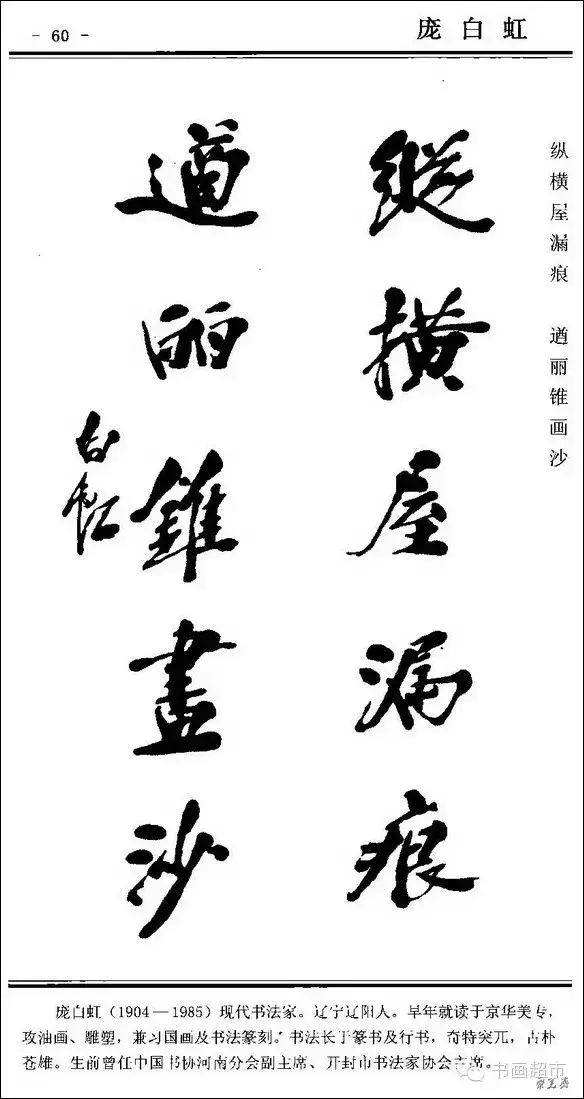 - 60 -
庞白虹
纵横屋漏痕 遒丽锥画沙
縱横屋漏痕
遒丽錐畫沙
白虹
庞白虹（1904—1985）现代书法家。辽宁辽阳人。早年就读于京华美专，
攻油画、雕塑，兼习国画及书法篆刻。书法长于篆书及行书，奇特突兀，古朴
苍雄。生前曾任中国书协河南分会副主席、开封市书法家协会主席。
书画超市